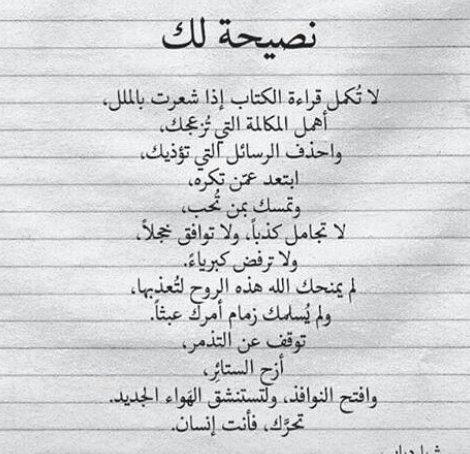 نصيحة لك
لا تُكمل قراءة الكتاب إذا شعرت بالملل،
أهمل المكالمة التي تُزعجك،
واحذف الرسائل التي تؤذيك،
ابتعد عمّن تكره،
وتمسك بمن تُحب،
لا تجامل كذباً، ولا توافق خجلاً،
ولا ترفض كبرياءً.
لم يمنحك الله هذه الروح لتُعذبها،
ولم يُسلمك زمام أمرك عبثاً.
توقف عن التذمر،
أزح الستائر،
وافتح النوافذ، ولتستنشق الهَواء الجديد.
تحرَّك، فأنت إنسان.